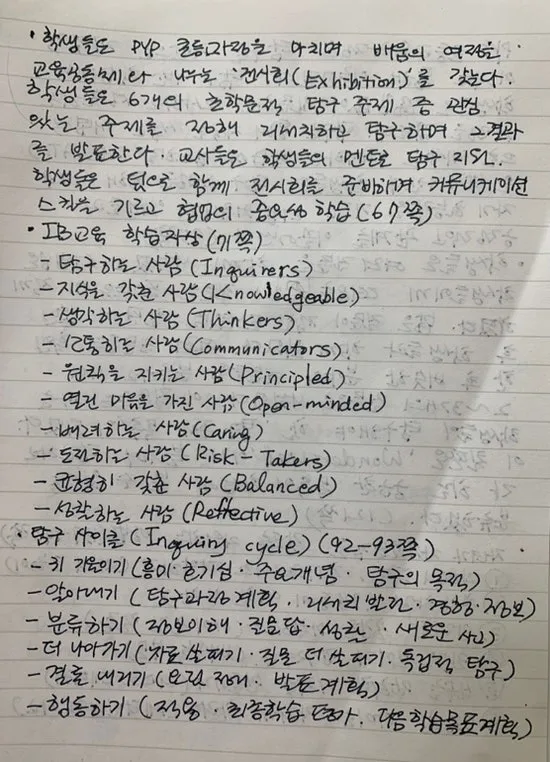 • 학생들은 PYP 졸업과정을 마치며 배움의 여정을
교육공동체와 나누는 '전시회(Exhibition)'를 갖는다.
학생들은 6개의 초학문적 탐구 주제 중 관심
있는 주제를 정해 리서치하고 탐구하며 그 결과
를 발표한다. 교사들은 학생들의 멘토로 탐구 지원.
학생들은 팀으로 함께 전시회를 준비하며 커뮤니케이션
스킬을 기르고 협업의 중요성 학습(67쪽)
• IB교육 학습자상(71쪽)
- 탐구하는 사람(Inquirers)
- 지식을 갖춘 사람(Knowledgeable)
- 생각하는 사람(Thinkers)
- 소통하는 사람(Communicators)
- 원칙을 지키는 사람(Principled)
- 열린 마음을 가진 사람(Open-minded)
- 배려하는 사람(Caring)
- 도전하는 사람(Risk-Takers)
- 균형히 갖춘 사람(Balanced)
- 성찰하는 사람(Reflective)
• 탐구 사이클(Inquiry cycle)(92-93쪽)
- 귀 기울이기(흥미·호기심·주요개념·탐구의 목적)
- 알아내기(탐구과정 계획·리서치 발전·경험·정보)
- 분류하기(정보이해·질문답·성찰·새로운)
- 더 나아가기(자료 살펴기·질문 더 살펴기·독립적 탐구)
- 결론 내리기(발표계획)
- 행동하기(적용·최종학습 평가·다음학습목표계획)